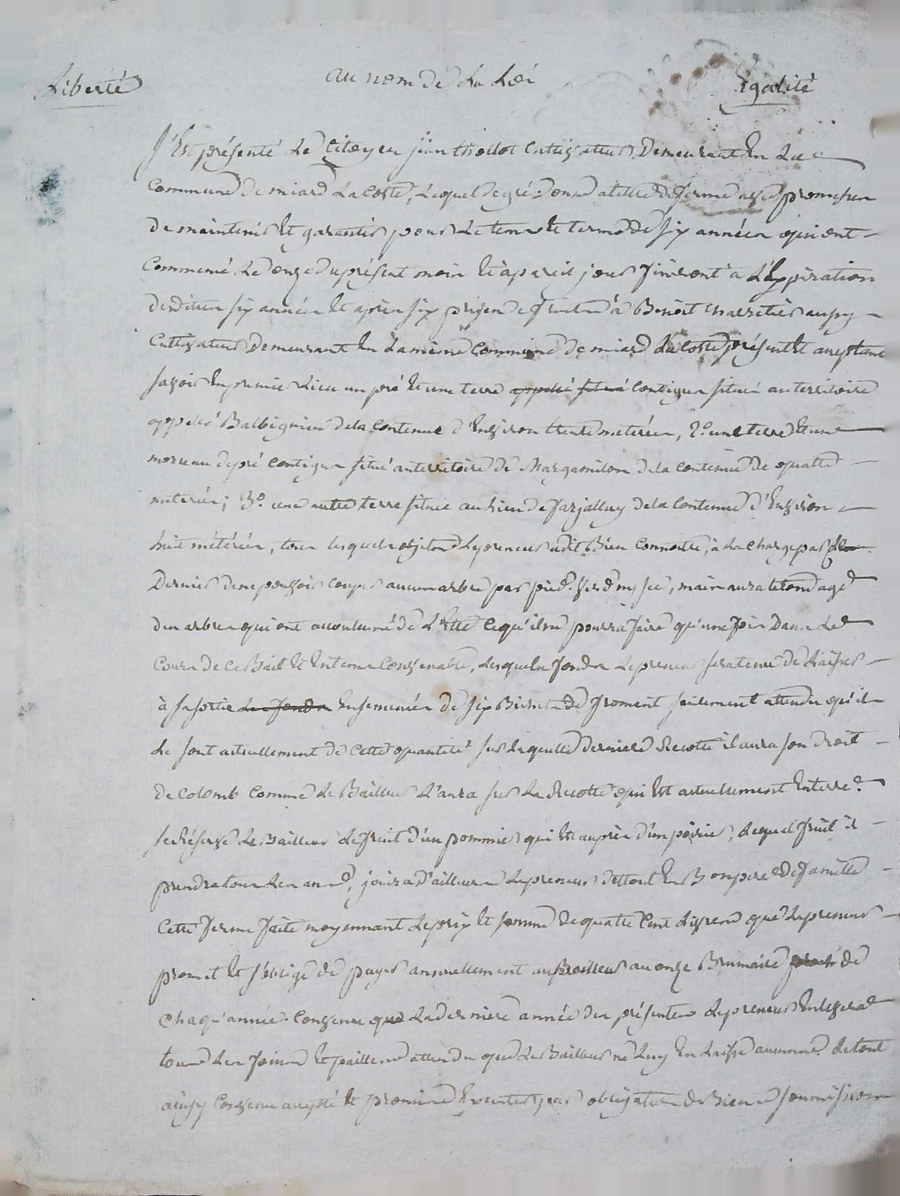 Liberté au nom de La Loi Egalité
S'Est présenté Le Citoyen jean thollot Cultivateur Demeurant En La
Commune de miard La Coste, Lequel de gré donne a titre de ferme avec promesse
de maintenir Et garantir pour Le tems Et terme de Six années qui ont
Commencé Le onze du présent mois Et à pareil jour finiront à L'Expiration
desdites six années Et après six prises de fruits à Benoit aussy
Cultivateur Demeurant En La même Commune de miard La Coste présent Et acceptant
savoir En premier Lieu un pré Et une terre appellé situé Contigus situés au territoire
appellé Balbignieu de la Contenue d'Environ trente meterées, 2.° une terre Et un
morceau de pré Contigus situé au territoire de de la Contenue de quatre
meterées; 3.° une autre terre située au Lieu de de la Contenue d'Environ
huit méterées, tous lesquels objets Le preneur a dit Bien Connoitre, à La Charge par Ce
Dernier de ne pouvoir Couper aucun arbre par pied verd ny sec, mais aura
des arbres qui ont accoutumé de L'Etre Ce qu'il ne pourra faire qu'une fois Dans Le
Cours de Ce Bail Et En tems Convenable, Lesquels fonds Le preneur sera tenu de Laisser
à sa sortie Les fonds Ensemencés de six Bichets de froment seulement attendu qu'il
Le sont actuellement de Cette quantité sur Laquelle derniere Recolte il aura son droit
de Colomb Comme Le Bailleur L'aura sur La Recolte qui Est actuellement En terre.
se Réserve Le Bailleur Le fruit d'un pommier qui Est auprès d'un poirier, Lequel fruit il
prendra tous Les ans, jouira d'ailleurs Le preneur du tout En Bon pere de famille
Cette ferme faite moyennant Le prix Et somme de quatre Cent dix francs que Le preneur
promet Et s'oblige de payer annuellement au Bailleur au onze Brumaire de
Chaqu'année. Convenu que La derniere année des présentes Le preneur Enlevera
tous Les foins Et pailles attendu que Le Bailleur ne Luy En Laisse aucune. Le tout
ainsy Convenu accepté Et promis Executer par obligation de Biens soumissions